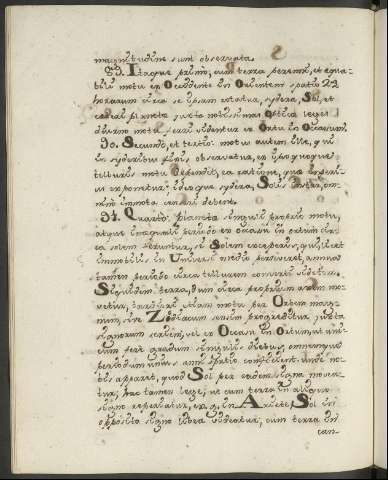 magnitudine sunt observata.
89. Itaque primo, cum terra perenni, et aqua-
bili motu ex Occidente in Orientem spatio 24
horarum circa se ipsam rotatur, sydera, Sol, et
caeteri planetae juxta notissimas Opticae leges
diurno motu ferri videntur ex Ortu in Occasum.
90. Secundo, et tertio motus autem ille, qui
in syderibus fixis observatur, ex ipso quoque
telluris motu dependit, ea ratione, qua
exponetur: ideoque sydera, Solis instar, om-
nino immota censeri debent.
91. Quarto. Planetae singuli proprio motu,
atque inaequali periodo ex occasu in ortum cir-
ca solem feruntur, et Solem exceperis, qui, licet
immobilis in Universi medio perseveret, annua
tamen periodo circa tellurem converti videtur.
Siquidem terra, dum circa proprium axem mo-
vetur, tardiori etiam motu per Orbem mag-
num, sive Zodiacum sensim progreditur juxta
signorum seriem, vel ex Occasu in Ortum, ut uni-
cum fere gradum singulis diebus, omnemque
periodum unius anni spatio conficiat. unde no-
bis apparet, quod Sol per eadem signa movea-
tur, hac tamen lege, ut cum terra in aliquo
signo reperiatur, ex. g. in Ariete Sol in
opposito signo libra videatur, cum terra in
can-